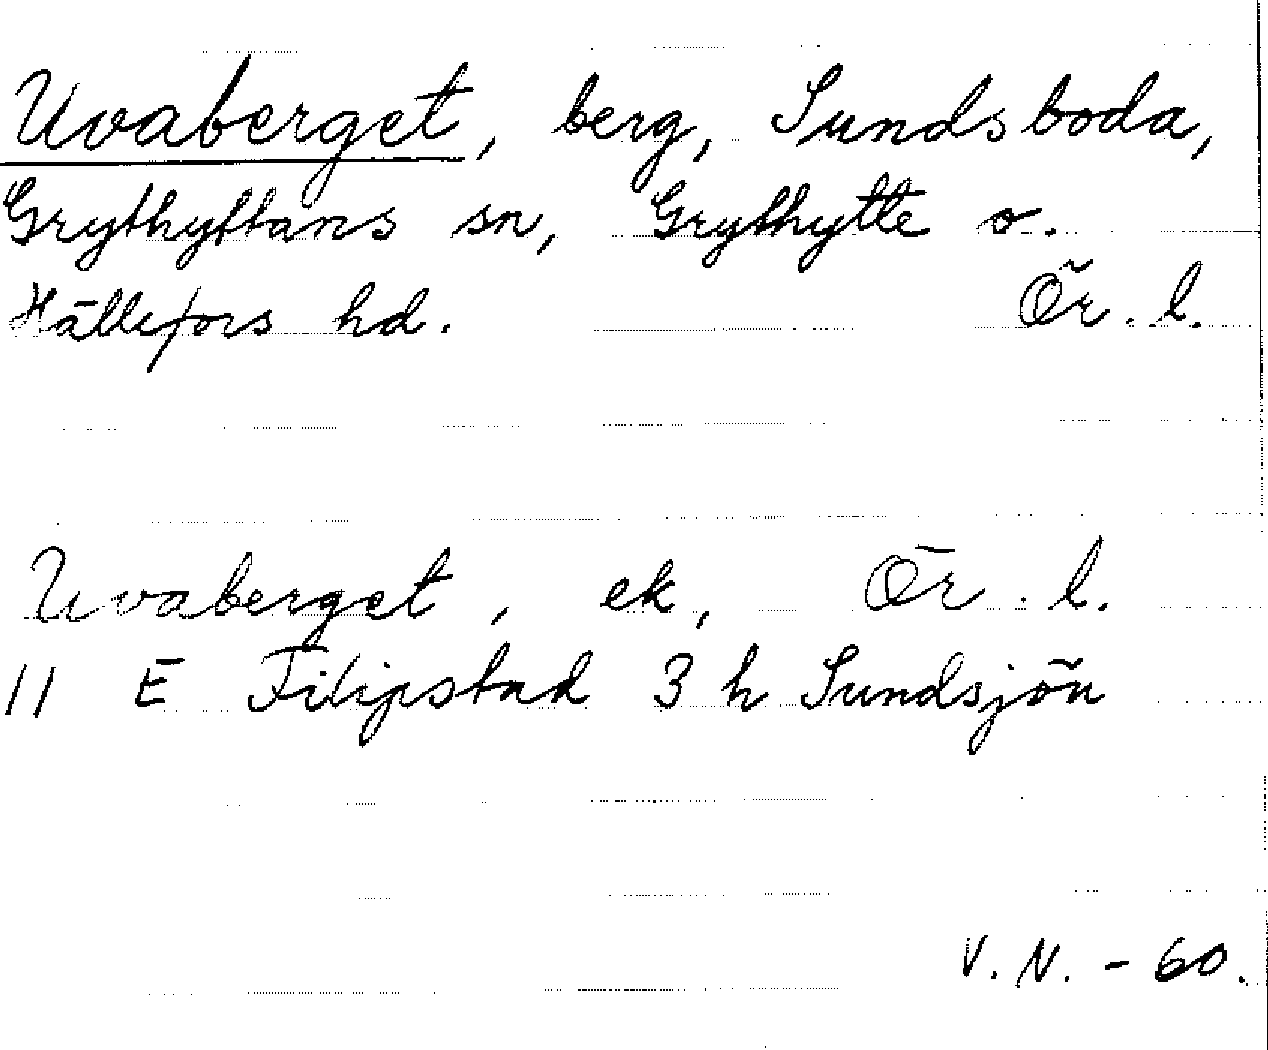 Uvaberget, berg, Sundsboda,
Grythyttans sn, Grythytte o.
Hällefors hd. Ör. l.
Uvaberget, ek, Ör. l.
11 E Filipstad 3 h Sundsjön
V. N. - 60.